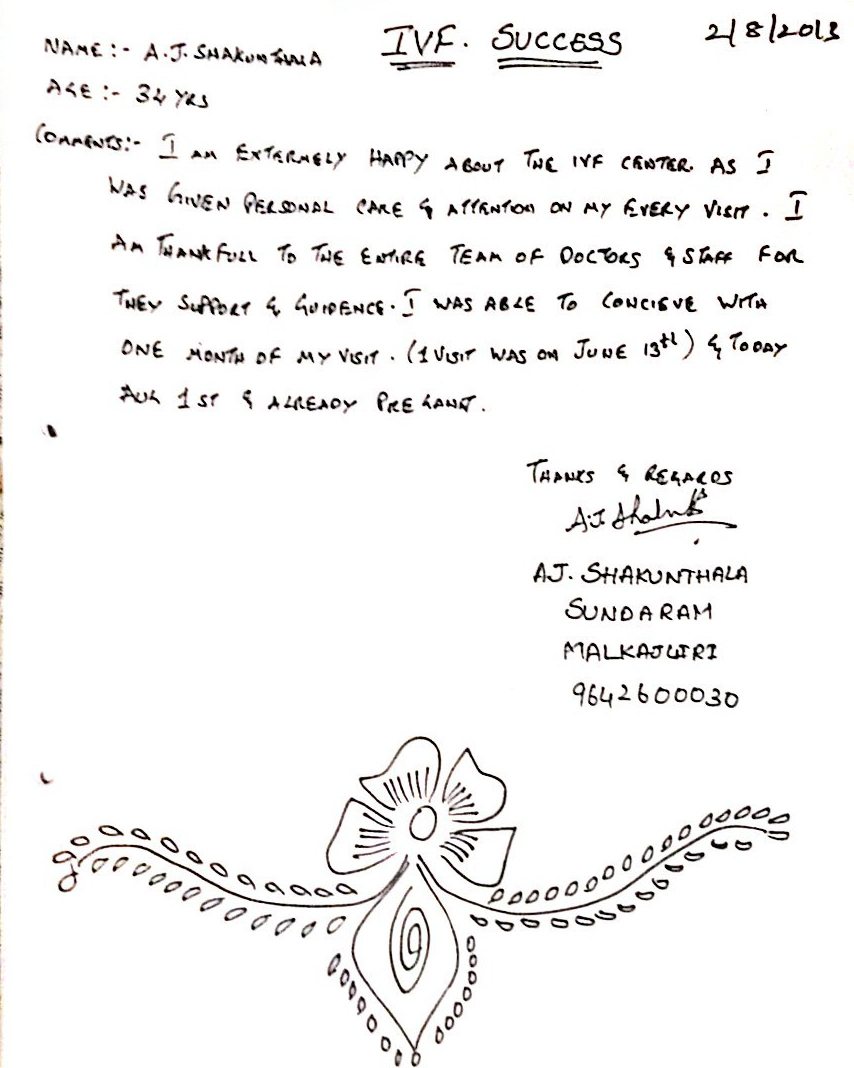 IVF. SUCCESS
2/8/2013
NAME :- A.J. SHAKUNTHALA
AGE :- 34 YRS
COMMENTS:- I AM EXTERMELY HAPPY ABOUT THE IVF CENTER. AS I
WAS GIVEN PERSONAL CARE & ATTENTION ON MY EVERY VISIT. I
AM THANKFULL TO THE ENTIRE TEAM OF DOCTORS & STAFF FOR
THEY SUPPORT & GUIDENCE. I WAS ABLE TO CONCIEVE WITH
ONE MONTH OF MY VISIT. (1 VISIT WAS ON JUNE 13th) & TODAY
AUG 1ST & ALREADY PREGANT.
THANKS & REGARDS
AJ. SHAKUNTHALA
SUNDARAM
MALKAJGIRI
9642600030